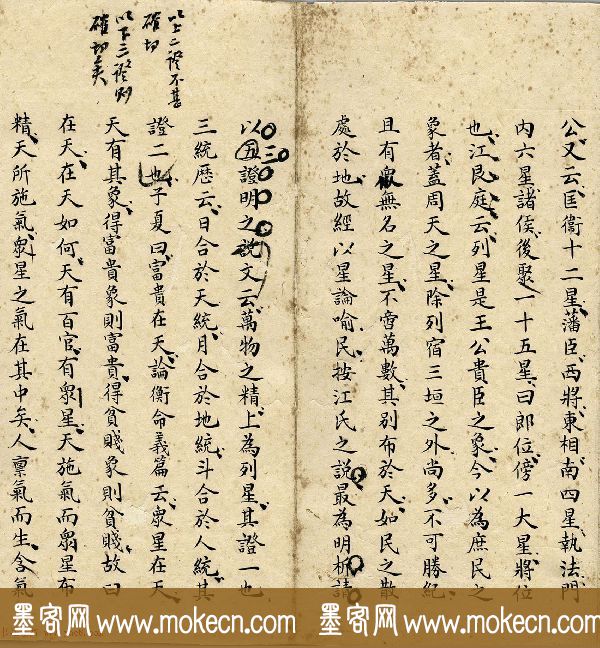 公又云匡衛十二星藩臣西將東相南四星執法門
內六星諸侯後聚一十五星曰郎位傍一大星將位
也江艮庭云列星是王公貴臣之象今以為庶民之
象者蓋周天之星除列宿三垣之外尚多不可勝紀
且有眾無名之星不啻萬數其別布於天如民之散
處於地故經以星論喻民按江氏之說最為明析請
以五證明之說文云萬物之精上為列星其證一也
三統歷云日合於天統月合於地統斗合於人統其
證二也子夏曰富貴在天論衡命義篇云眾星在天
天有其象得富貴象則富貴得貧賤象則貧賤故曰
在天在天如何天有百官有眾星天施氣而眾星布
精天所施氣眾星之氣在其中矣人稟氣而生含氣
以上二證不甚
確切
以下三證則
確切矣
墨客网 www.mokecn.com 墨客网 www.mokecn.com